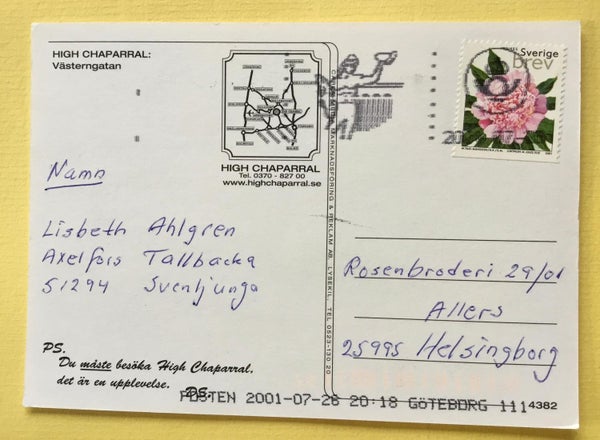 HIGH CHAPARRAL:
Västerngatan
HIGH CHAPARRAL
Tel. 0370 - 827 00
www.highchaparral.se
Sverige
brev
Namn
Lisbeth Ahlgren
Axelfors Tallbacka
51294 Svenljunga
MARKNADSFÖRING & REKLAM AB, LYSEKIL, TEL 0523-130 20
Rosenbroderi 29/01
Allers
25995 Helsingborg
PS.
Du måste besöka High Chaparral,
det är en upplevelse. DS.
POSTEN 2001-07-26 20:18 GÖTEBORG 111
4382